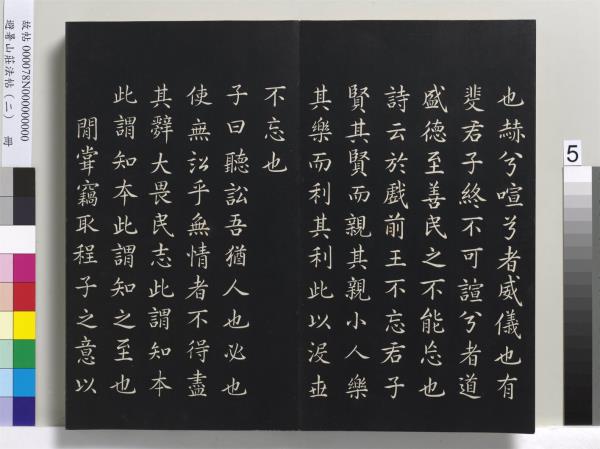 也赫兮喧兮者威儀也有
斐君子終不可諠兮者道
盛德至善民之不能忘也
詩云於戲前王不忘君子
賢其賢而親其親小人樂
其樂而利其利此以沒世
不忘也
子曰聽訟吾猶人也必也
使無訟乎無情者不得盡
其辭大畏民志此謂知本
此謂知本此謂知之至也
閒嘗竊取程子之意以
故帖 000078N000000000
避暑山莊法帖(二) 冊
5